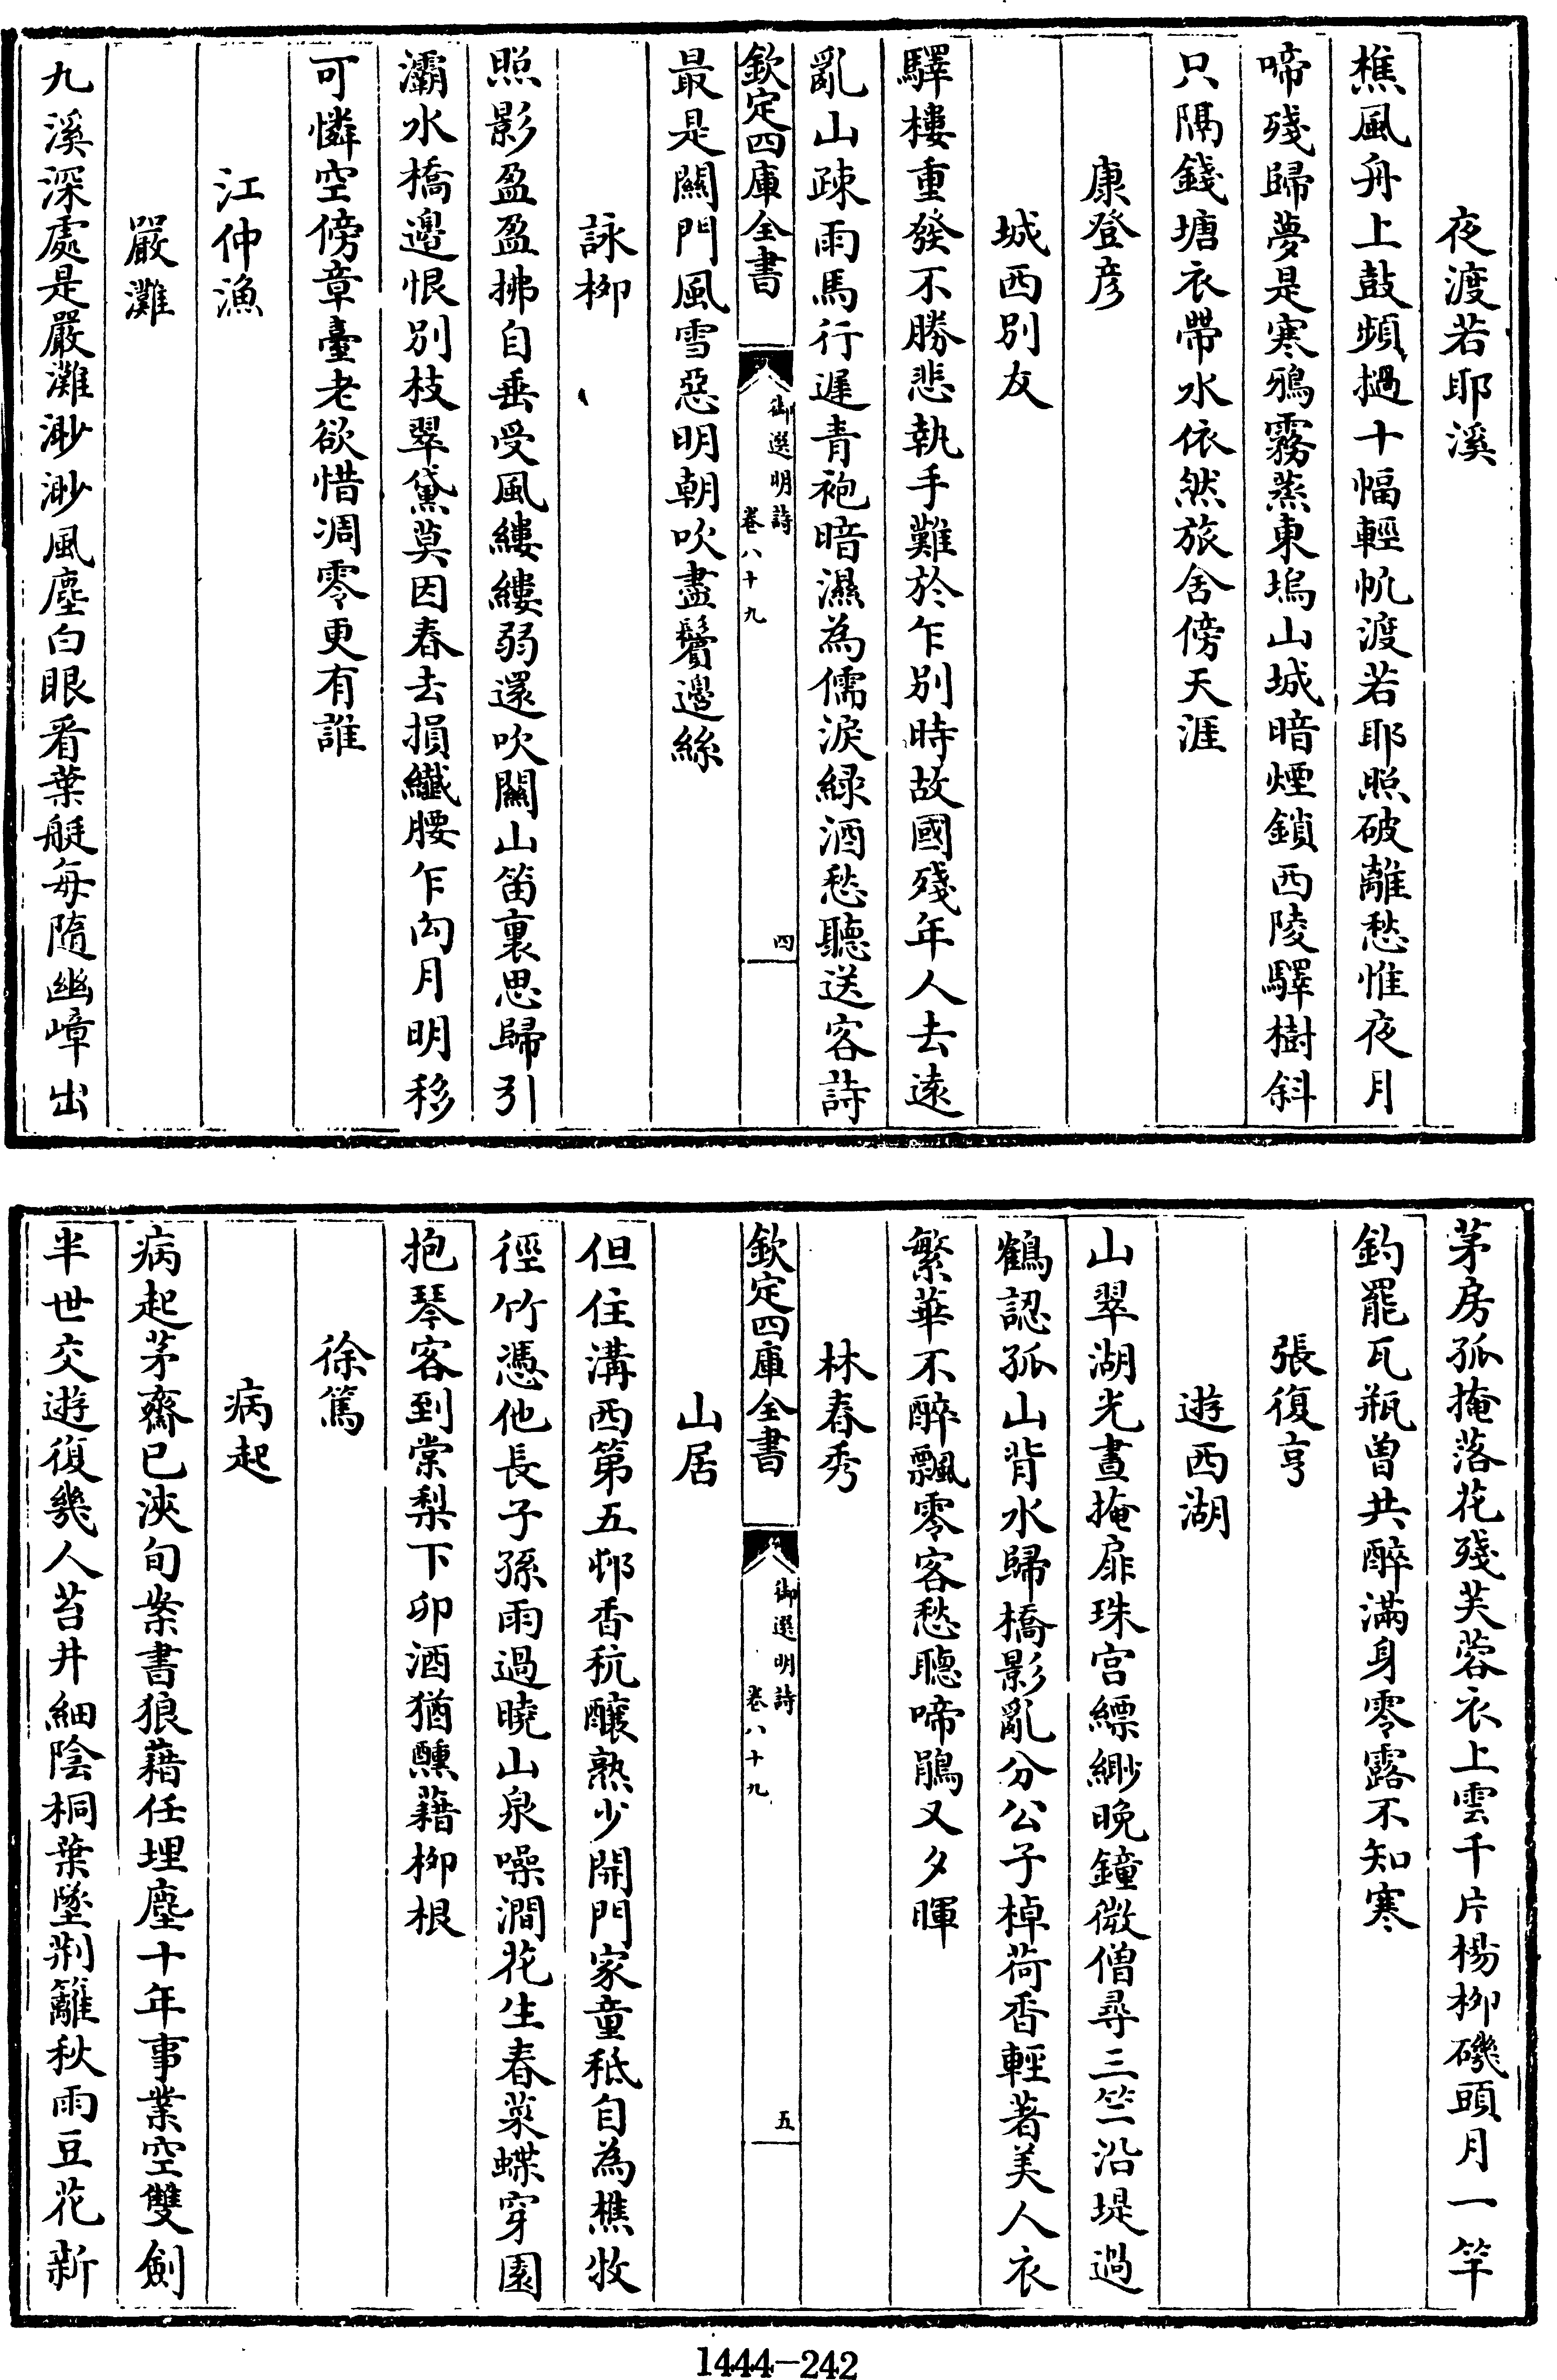 夜渡若耶溪
樵風舟上鼓頻撾十幅輕帆渡若耶照破離愁惟夜月
啼殘歸夢是寒鴉霧蒸東塢山城暗煙鎖西陵驛樹斜
只隔錢塘衣帶水依然旅舍傍天涯
康登彦
城西别友
驛樓重發不勝悲執手難於乍别時故國殘年人去遠
亂山疎雨馬行遲青袍暗濕為儒淚緑酒愁聽送客詩
欽定四庫全書
御選明詩
卷八十九
四
最是關門風雪惡明朝吹盡鬢邊絲
詠栁
照影盈盈拂自垂受風縷縷弱還吹關山笛裏思歸引
灞水橋邊恨别枝翠黛莫因春去損纖腰乍向月明移
可憐空傍章臺老欲惜凋零更有誰
江仲漁
嚴灘
九溪深處是嚴灘渺渺風塵白眼看葉艇每隨幽嶂出
茅房孤掩落花殘芙蓉衣上雲千片楊栁磯頭月一竿
釣罷瓦瓶曽共醉滿身零露不知寒
張復亨
遊西湖
山翠湖光晝掩扉珠宫縹緲晚鐘微僧尋三竺沿堤過
鶴認孤山背水歸橋影亂分公子棹荷香輕著美人衣
繁華不醉飄零客愁聽啼鵑又夕暉
林春秀
欽定四庫全書
御選明詩
卷八十九
五
山居
但住溝西第五邨香秔釀熟少開門家童秪自為樵牧
徑竹憑他長子孫雨過曉山泉噪澗花生春菜蝶穿園
抱琴客到棠梨下卯酒猶醺藉栁根
徐篤
病起
病起茅齋已浹旬案書狼藉任埋塵十年事業空雙劍
半世交遊復幾人苔井細陰桐葉墜荆籬秋雨豆花新
1444-242